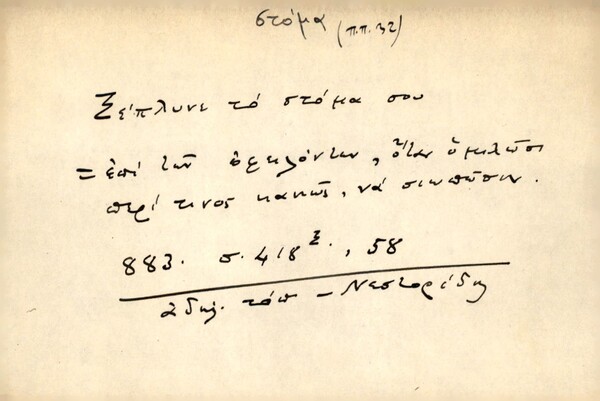 στόμα (π.π. 32)
Ξέπλυνε τό στόμα σου
= ἐπί τῶν ὀφειλόντων, ὅταν ὁμιλῶσι
περί τινος κακῶς, νά σιωπῶσιν.
883. σ. 418 Ξ., 58
ἀδήλ. τόπ - Νεστορίδη